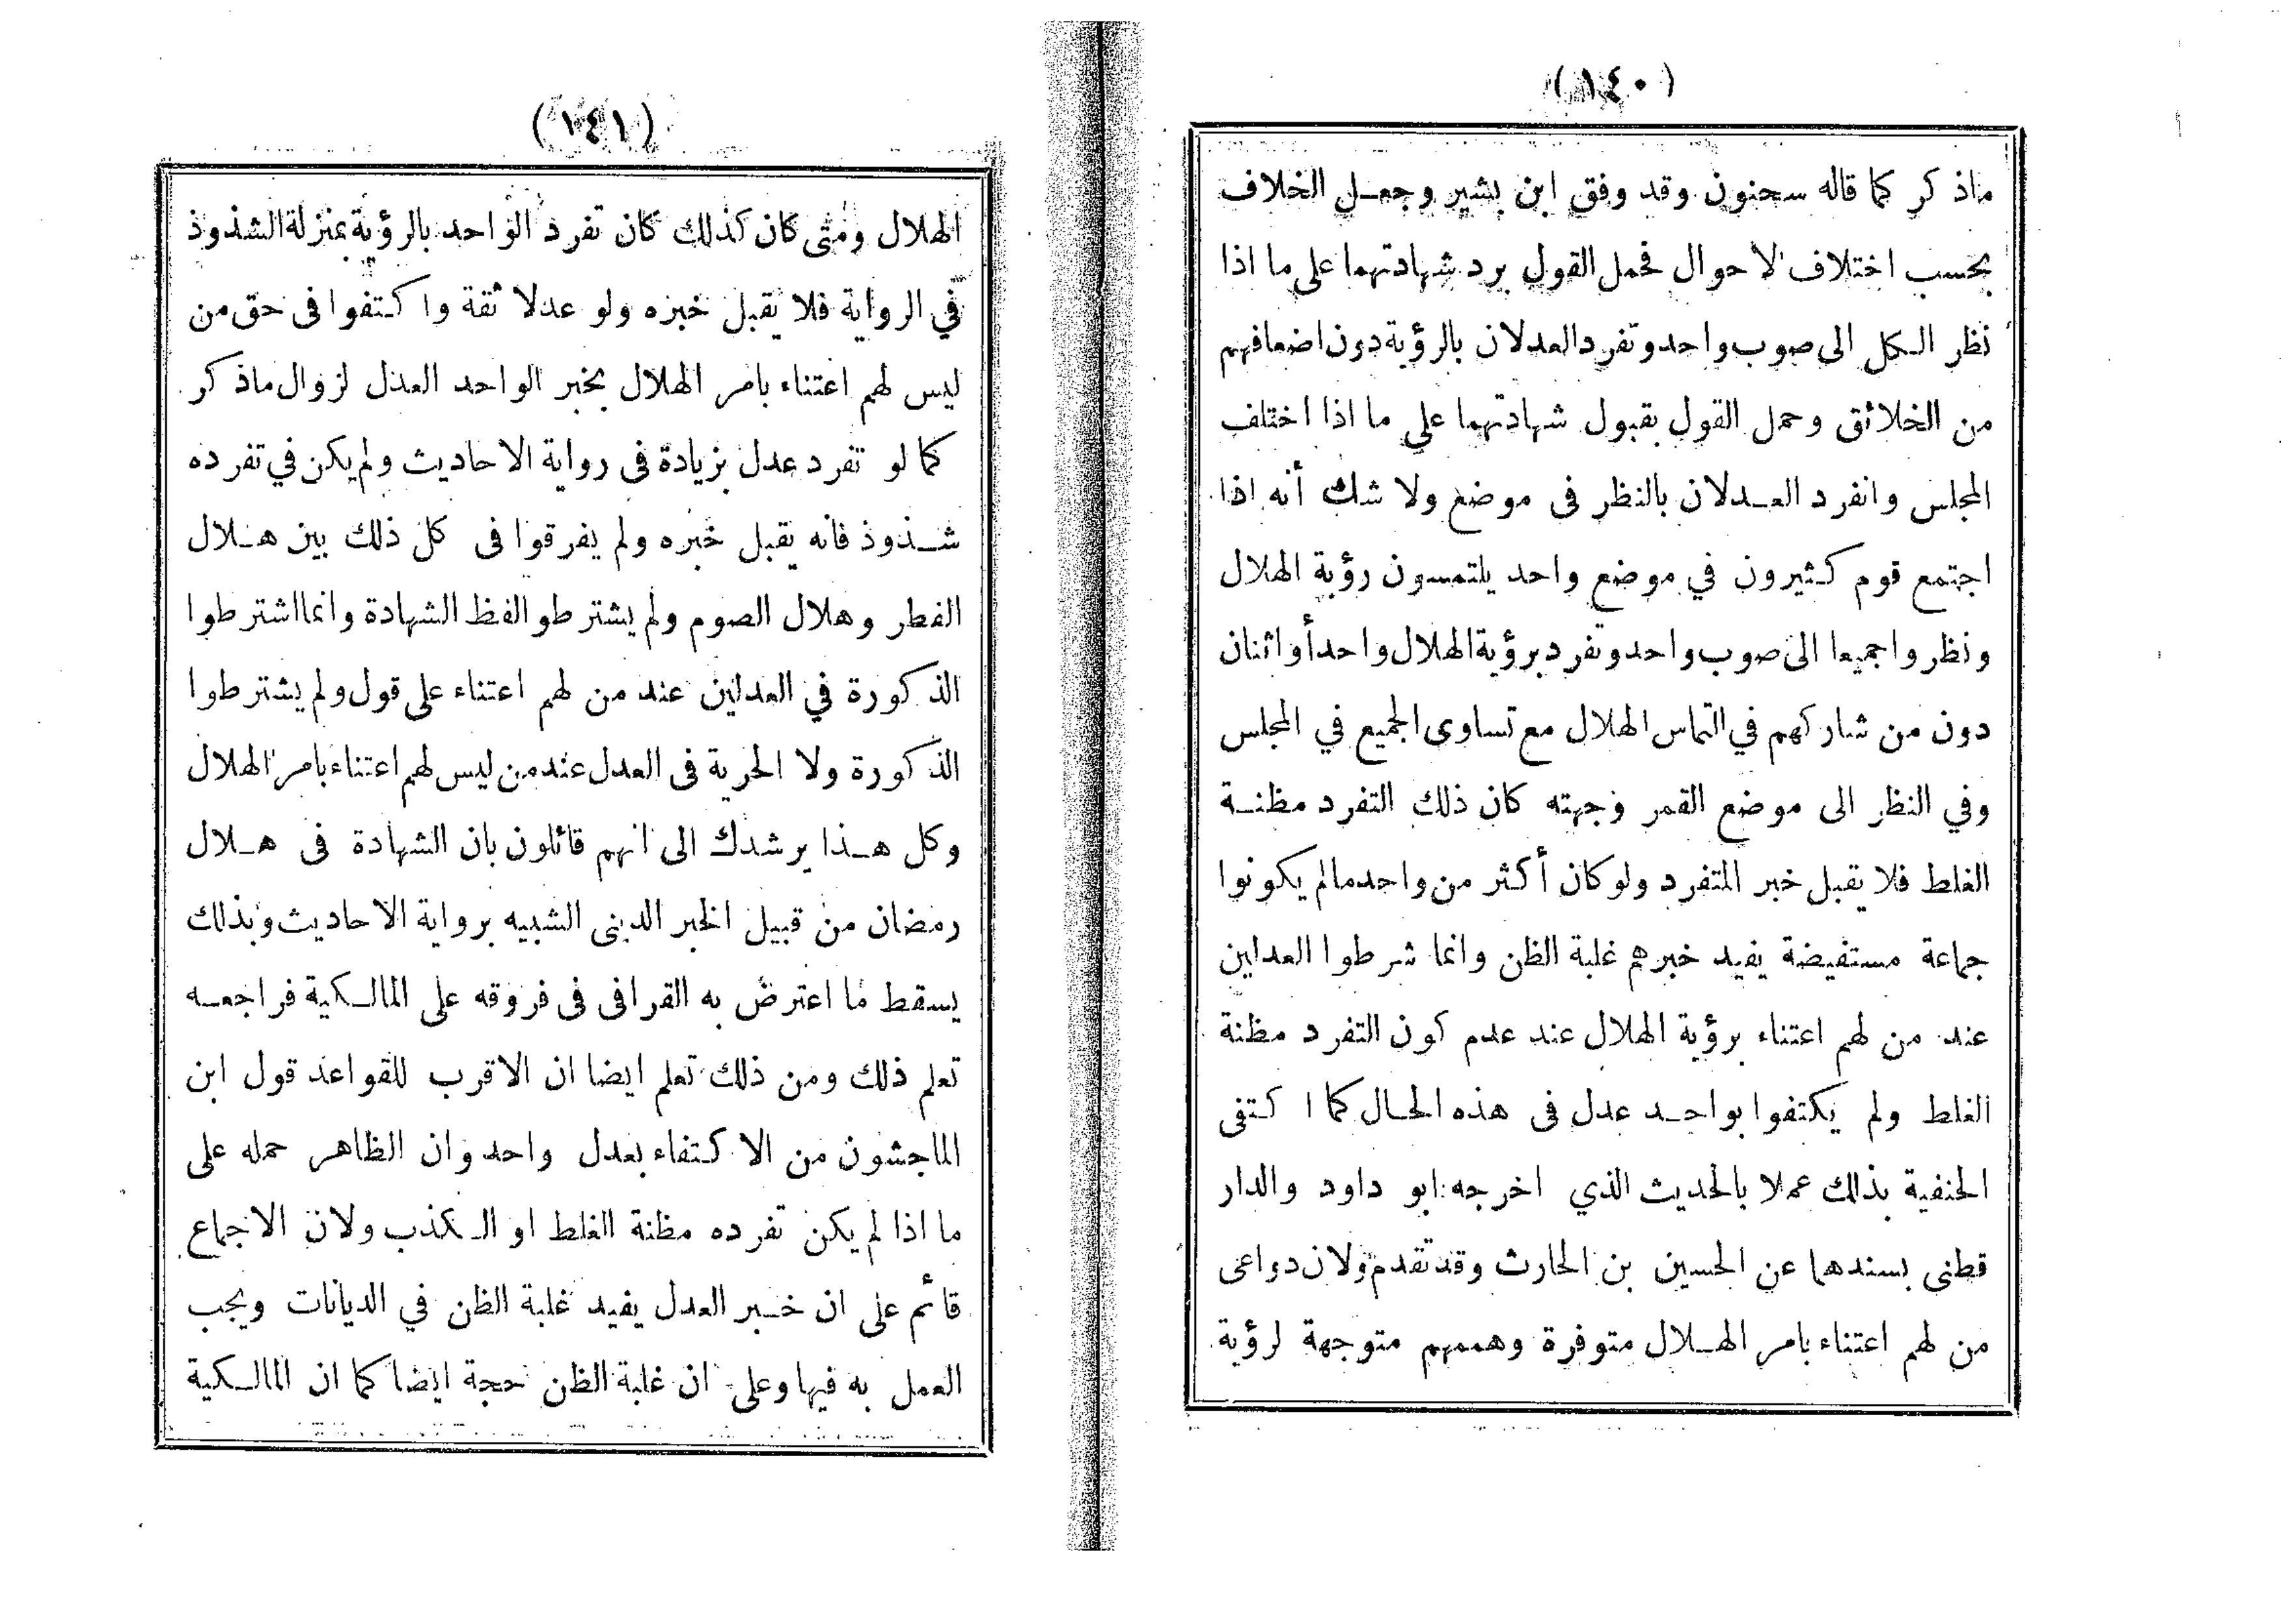 (١٤٠)
ماذكر كما قاله سحنون وقد وفق ابن بشير وجعل الخلاف
بحسب اختلاف الاحوال فحمل القول برد شهادتهما على ما اذا
نظر الكل الى صوب واحد وتفرد العدلان بالرؤية دون اضعافهم
من الخلائق وحمل القول بقبول شهادتهما على ما اذا اختلف
المجلس وانفرد العدلان بالنظر فى موضع ولا شك أنه اذا
اجتمع قوم كثيرون في موضع واحد يلتمسون رؤية الهلال
ونظروا جميعا الى صوب واحد وتفرد برؤية الهلال واحد أو اثنان
دون من شاركهم في التماس الهلال مع تساوى الجميع في المجلس
وفي النظر الى موضع القمر وجهته كان ذلك التفرد مظنة
الغلط فلا يقبل خبر المتفرد ولو كان أكثر من واحد مالم يكونوا
جماعة مستفيضة يفيد خبرهم غلبة الظن وانما شرطوا العدلين
عند من لهم اعتناء برؤية الهلال عند عدم كون التفرد مظنة
الغلط ولم يكتفوا بواحد عدل فى هذه الحال كما اكتفى
الحنفية بذلك عملا بالحديث الذي اخرجه ابو داود والدار
قطنى بسندهما عن الحسين بن الحارث وقد تقدم ولان دواعى
من لهم اعتناء بامر الهلال متوفرة وهممهم متوجهة لرؤية
(١٤١)
الهلال ومتى كان كذلك كان تفرد الواحد بالرؤية بمنزلة الشذوذ
في الرواية فلا يقبل خبره ولو عدلا ثقة واكتفوا فى حق من
ليس لهم اعتناء بامر الهلال بخبر الواحد العدل لزوال ماذكر
كما لو تفرد عدل بزيادة فى رواية الاحاديث ولم يكن في تفرده
شذوذ فانه يقبل خبره ولم يفرقوا فى كل ذلك بين هلال
الفطر وهلال الصوم ولم يشترطوا لفظ الشهادة وانما اشترطوا
الذكورة في العدلين عند من لهم اعتناء على قول ولم يشترطوا
الذكورة ولا الحرية فى العدل عند من ليس لهم اعتناء بامر الهلال
وكل هذا يرشدك الى انهم قائلون بان الشهادة فى هلال
رمضان من قبيل الخبر الدينى الشبيه برواية الاحاديث وبذلك
يسقط ما اعترض به القرافى فى فروقه على المالكية فراجعه
تعلم ذلك ومن ذلك تعلم ايضا ان الاقرب للقواعد قول ابن
الماجشون من الاكتفاء بعدل واحد وان الظاهر حمله على
ما اذا لم يكن تفرده مظنة الغلط او الكذب ولان الاجماع
قائم على ان خبر العدل يفيد غلبة الظن في الديانات ويجب
العمل به فيها وعلى ان غلبة الظن حجة ايضا كما ان المالكية